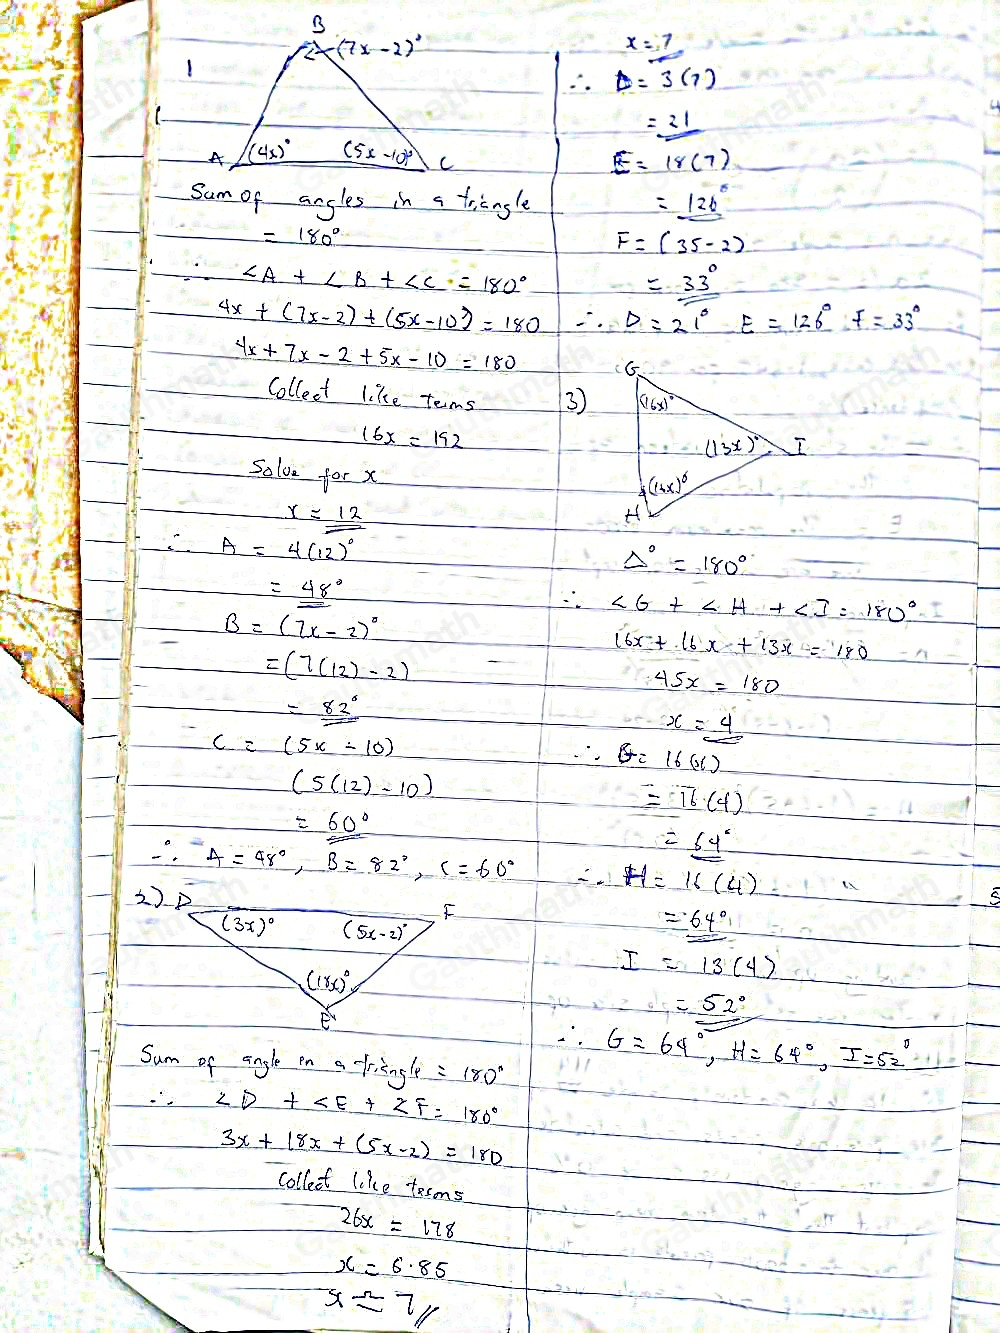 1
B
(7x-2)°
A (4x)° (5x-10)° C
Sum of angles in a triangle
= 180°
∴ <A + <B + <C = 180°
4x + (7x-2) + (5x-10) = 180
4x + 7x - 2 + 5x - 10 = 180
Collect like terms
16x = 192
Solve for x
x = 12
∴ A = 4(12)°
= 48°
B = (7x-2)°
= (7(12)-2)
= 82°
C = (5x-10)
(5(12)-10)
= 60°
∴ A = 48°, B = 82°, C = 60°
2) D F
(3x)° (5x-2)°
(18x)°
E
Sum of angle in a triangle = 180°
∴ <D + <E + <F = 180°
3x + 18x + (5x-2) = 180
Collect like terms
26x = 178
x = 6.85
x ≏ 7
x = 7
∴ D = 3(7)
= 21
E = 18(7)
= 126°
F = (35-2)
= 33°
∴ D = 21° E = 126° F = 33°
3)
G
(16x)°
(13x)° I
(16x)°
H
Δ° = 180°
∴ <G + <H + <I = 180°
16x + 16x + 13x = 180
45x = 180
x = 4
∴ G = 16(x)
= 16(4)
= 64°
∴ H = 16(4)
= 64°
I = 13(4)
= 52°
∴ G = 64°, H = 64°, I = 52°